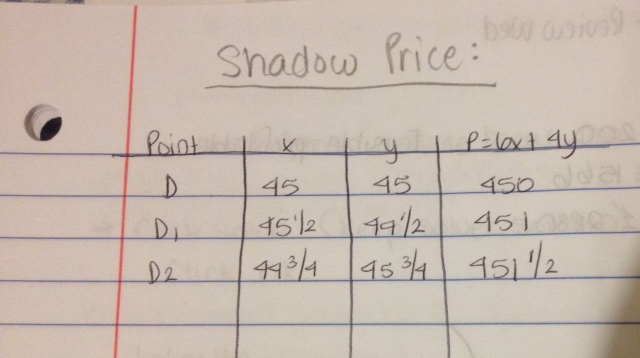 Shadow Price:
Point x y P=6x+ 4y
D 45 45 450
D1 45 1/2 44 1/2 451
D2 44 3/4 45 3/4 451 1/2